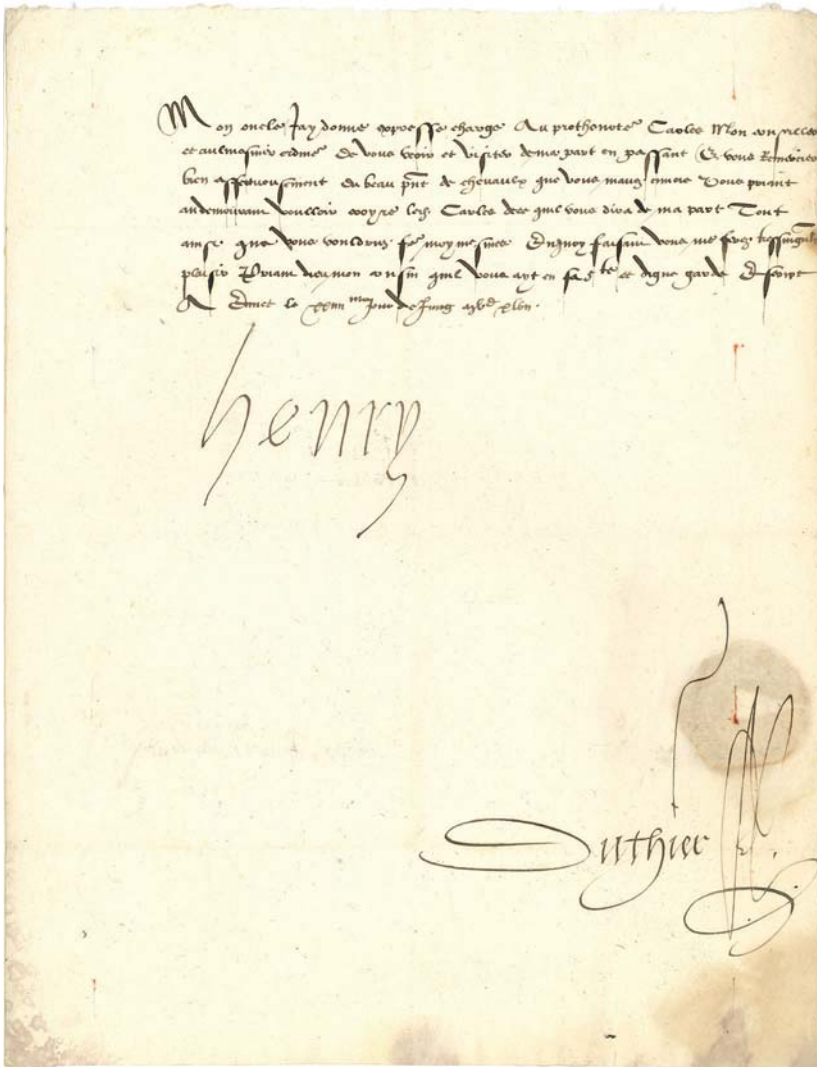 Mon oncle Jay donne expresse charge Au prothenotere Carles Mon conseiller
et aulmosnier ordinere De vous veoir et visiter de ma part en passant Et vous Remercier
bien affectueusement du beau pnt de chevaulx que vous mavez envoie Vous priant
au demourant voulloir croyre led. Carles de ce quil vous dira de ma part Tout
ainsi que vous vouldriez fe moymesmes Enquoy faisant vous me ferez tressingulier
plaisir Priant dieu mon cousin quil vous ayt en sa ste et digne garde Escript
A le jour de Juing
henry
Duthier